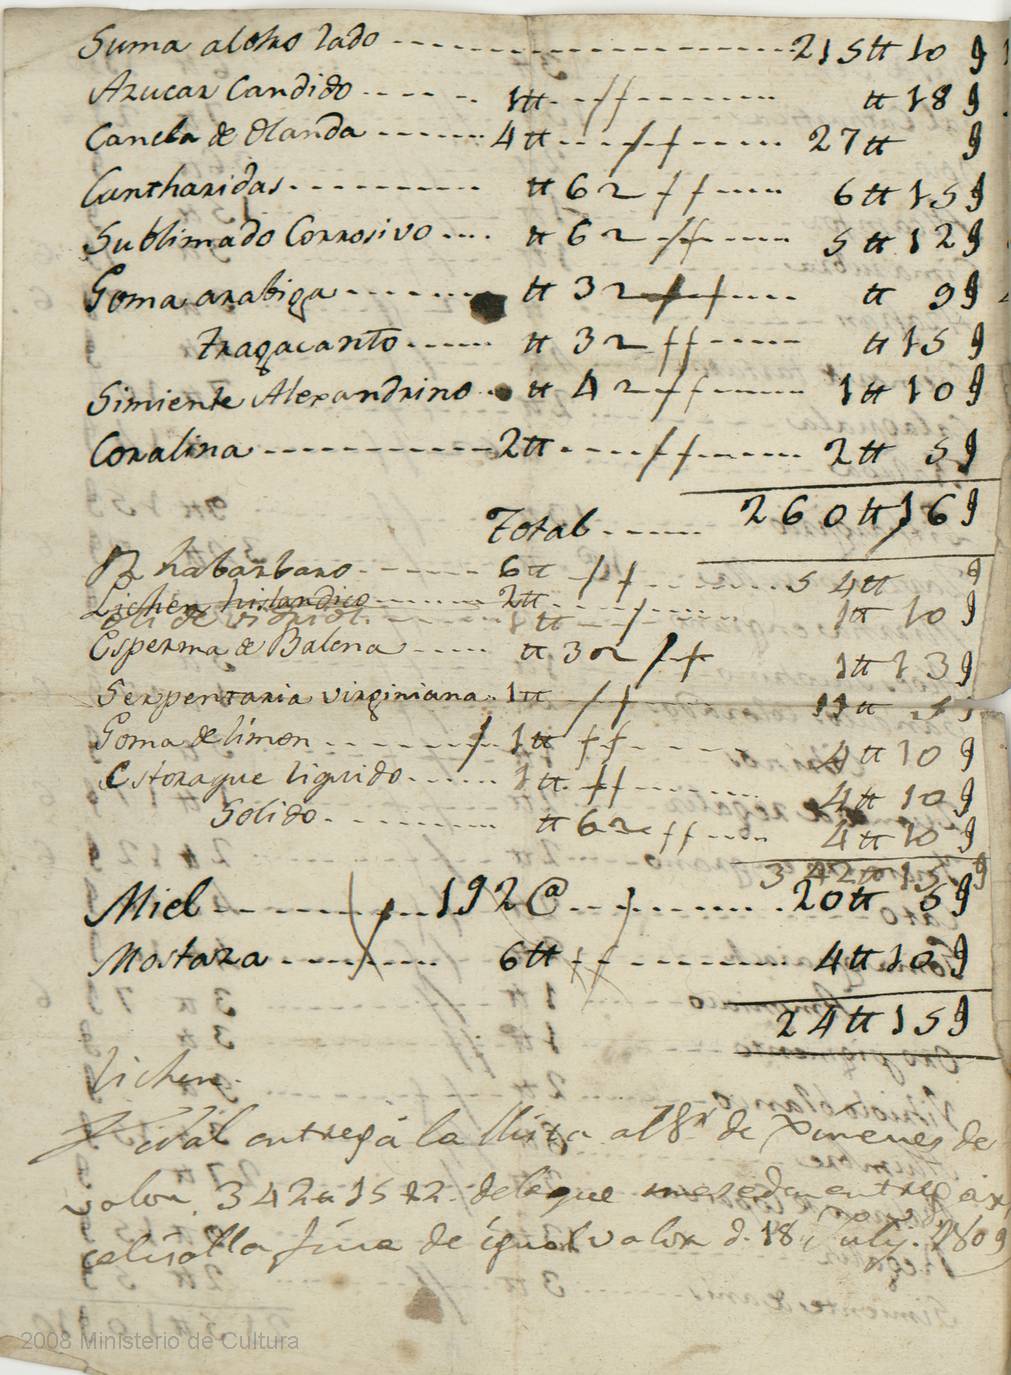 Suma al otro lado ---------- 215 tt 10 ₰
Azucar Candido ---- 1 tt -- // ------- tt 18 ₰
Canela de Olanda ------ 4 tt --- // ---- 27 tt ₰
Cantharidas --------- tt 6 2 // ---- 6 tt 15 ₰
Sublimado Corrosivo ... tt 6 2 // ---- 5 tt 12 ₰
Goma arabiga ------ tt 3 2 // ---- tt 9 ₰
tragacanto ----- tt 3 2 // ---- tt 15 ₰
Simiente Alexandrino - tt 4 2 // ---- 1 tt 10 ₰
Coralina ---------- 2 tt ---- // ---- 2 tt 5 ₰
Total ----- 260 tt 16 ₰
Rhabarbaro ------ 6 tt // ------ 54 tt ₰
Lichen hislandico ------ 2 tt
oli de vidriol ------ 1 tt -- / ---- 1 tt 10 ₰
Esperma de Balena ----- tt 3 2 // 1 tt 13 ₰
Serpentaria virginiana - 1 tt // 11 tt 5 ₰
Goma de limon ------ 1 tt // ---- 4 tt 10 ₰
Estoraque liquido ----- 1 tt // ------ 4 tt 10 ₰
Solido --------- tt 6 2 // ---- 4 tt 10 ₰
342 tt 15 ₰
Miel ------ 192 @ ------ 20 tt 5 ₰
Mostaza ------ 6 tt // ------ 4 tt 10 ₰
24 tt 15 ₰
Lichen
entregá la llista al Sr. de Ximenes de
valor 342 tt 15 2 de la que
de igual valor d. 18 July. 1809
2008 Ministerio de Cultura